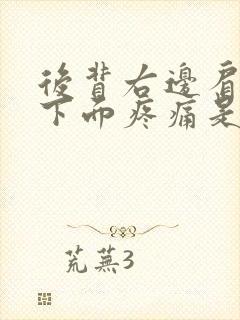 後背右邊肩
下面疼痛是
荒蕪3